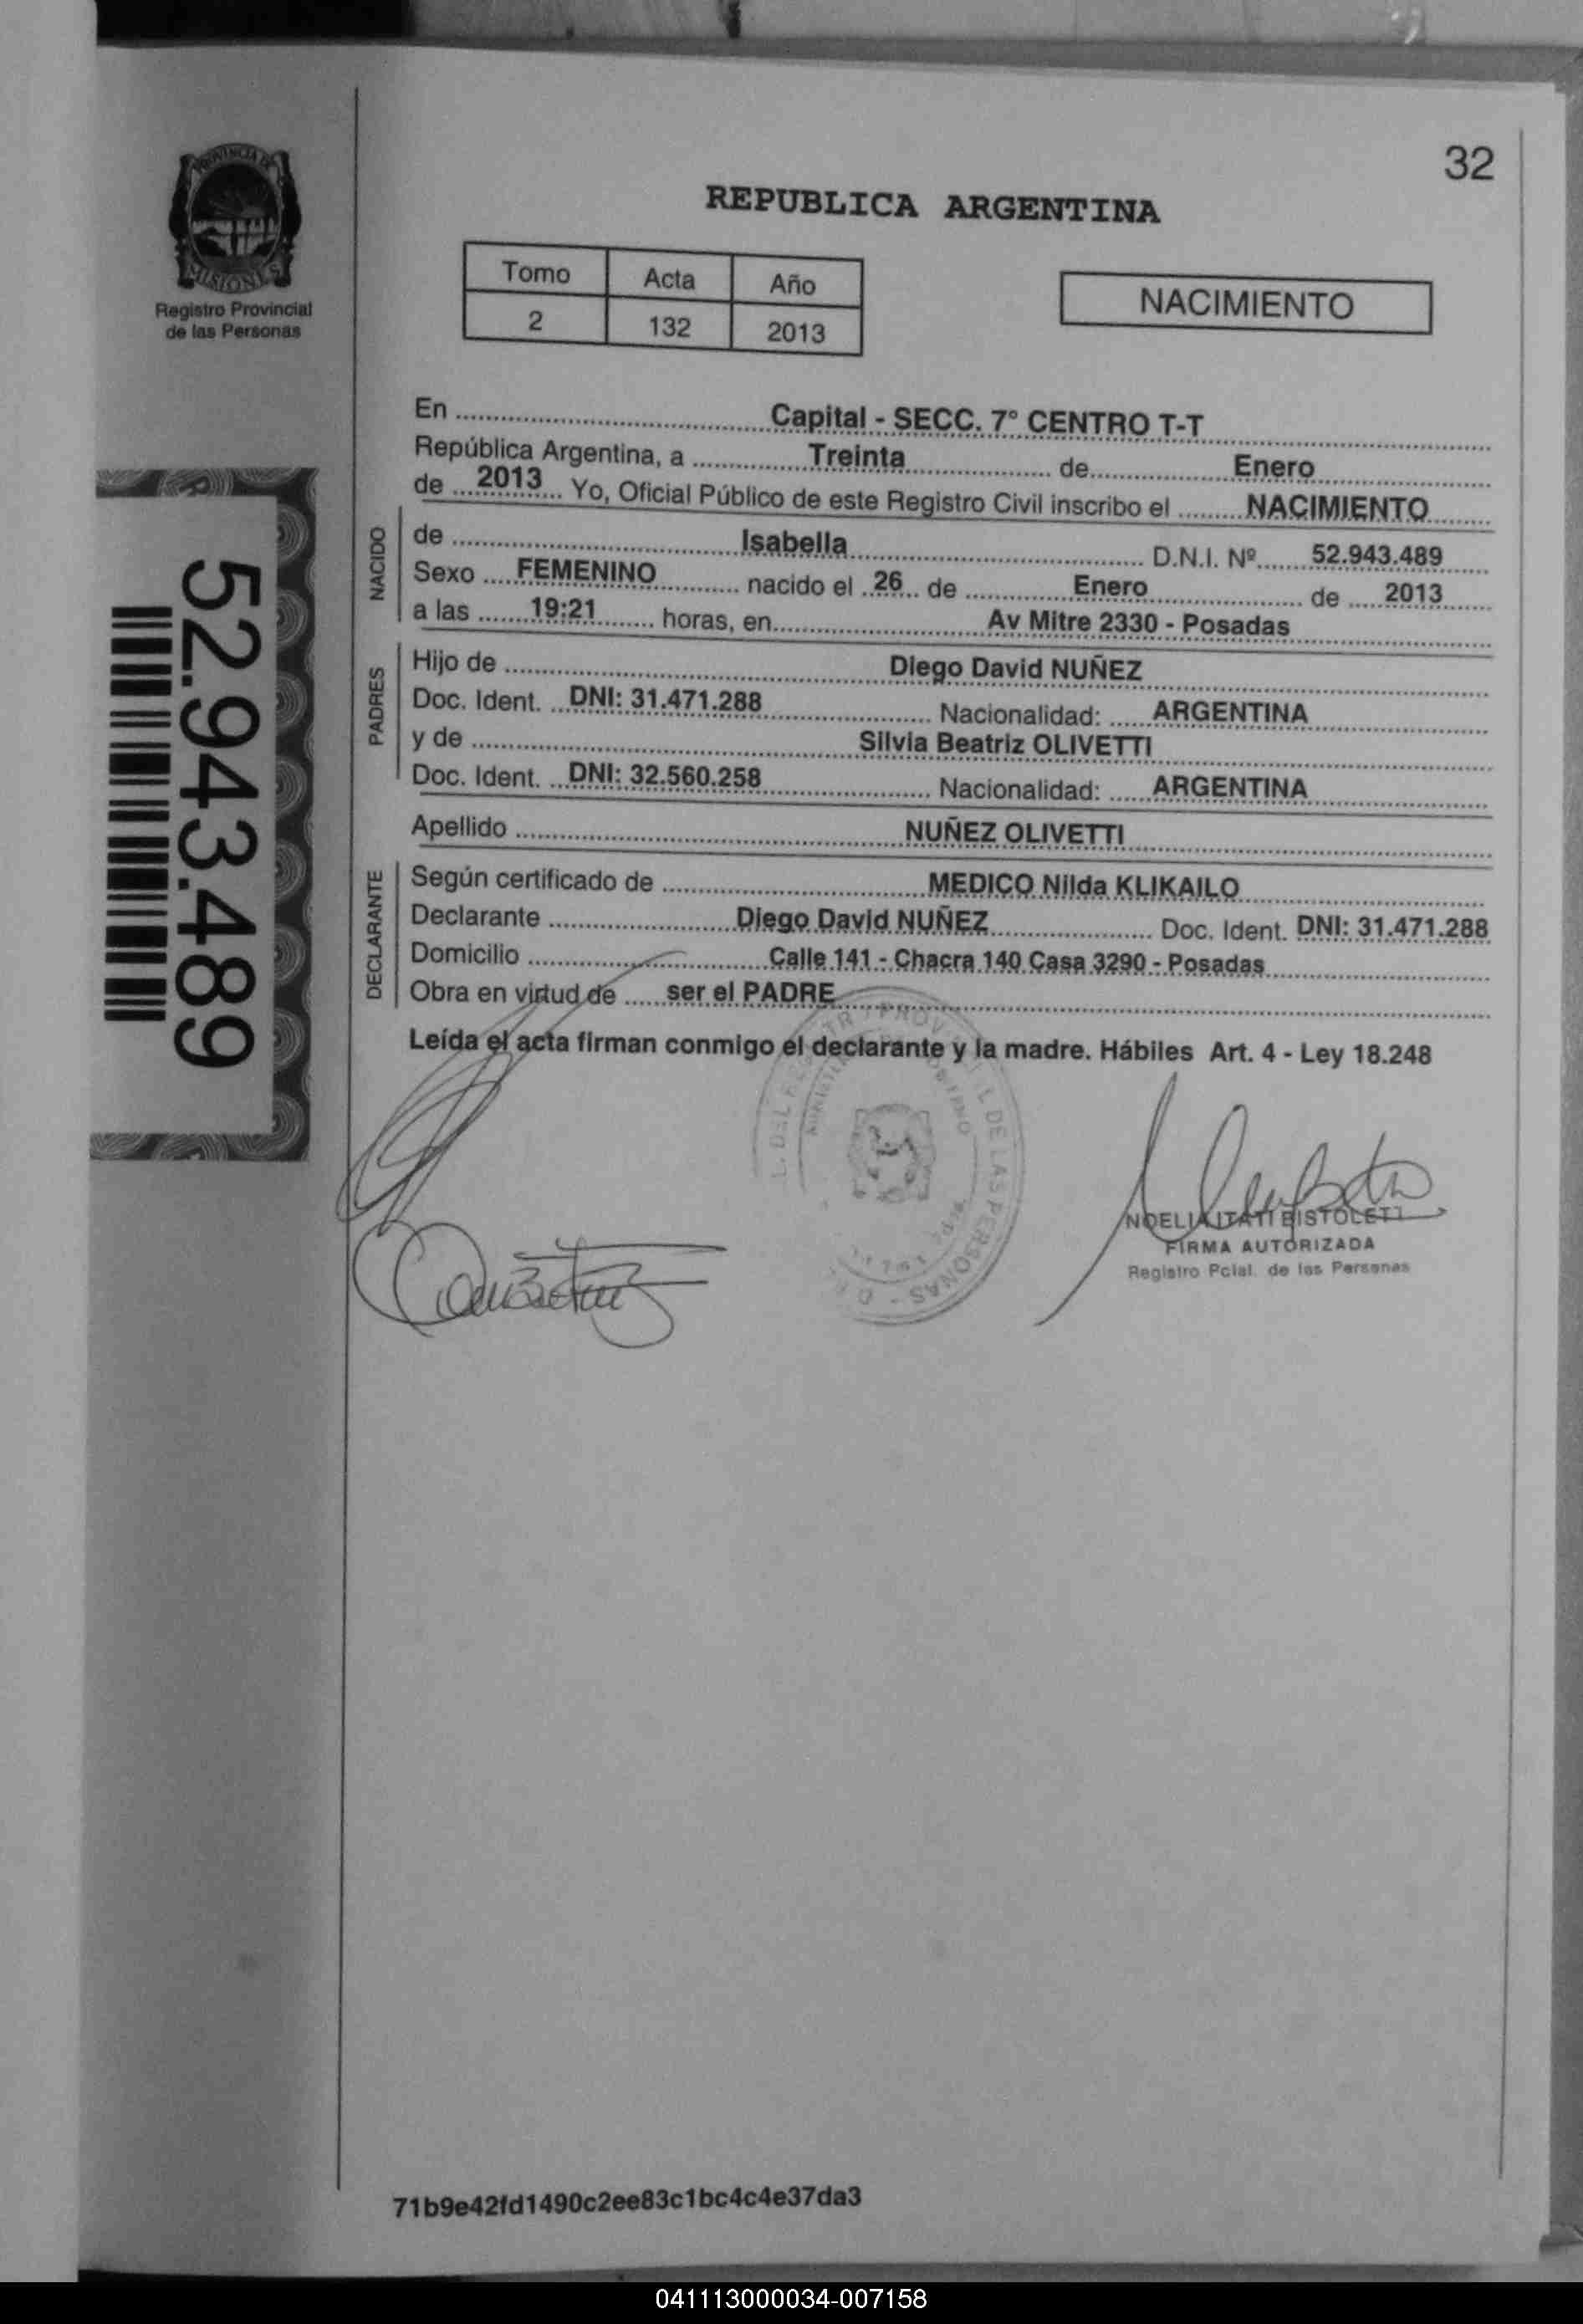 PROVINCIA DE
MISIONES
Registro Provincial
de las Personas
32
REPUBLICA ARGENTINA
Tomo Acta Año
2 132 2013
NACIMIENTO
En Capital - SECC. 7° CENTRO T-T
República Argentina, a Treinta de Enero
de 2013 Yo, Oficial Público de este Registro Civil inscribo el NACIMIENTO
NACIDO
de Isabella D.N.I. Nº 52.943.489
Sexo FEMENINO nacido el 26 de Enero de 2013
a las 19:21 horas, en Av Mitre 2330 - Posadas
PADRES
Hijo de Diego David NUÑEZ
Doc. Ident. DNI: 31.471.288 Nacionalidad: ARGENTINA
y de Silvia Beatriz OLIVETTI
Doc. Ident. DNI: 32.560.258 Nacionalidad: ARGENTINA
Apellido NUÑEZ OLIVETTI
DECLARANTE
Según certificado de MEDICO Nilda KLIKAILO
Declarante Diego David NUÑEZ Doc. Ident. DNI: 31.471.288
Domicilio Calle 141 - Chacra 140 Casa 3290 - Posadas
Obra en virtud de ser el PADRE
Leída el acta firman conmigo el declarante y la madre. Hábiles Art. 4 - Ley 18.248
52.943.489
DE LAS PERSONAS
NOELIA ITATI BISTOLETTI
FIRMA AUTORIZADA
Registro Pcial. de las Personas
71b9e42fd1490c2ee83c1bc4c4e37da3
041113000034-007158